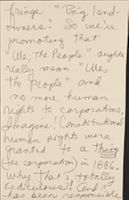 fringe "Big land-
owners? So we're
promoting that
"We, The People" ought
really mean "We
The People" and
no more human
rights to corporations,
Imagine, Constitutional
human rights were
granted to a thing
(the corporation) in 1886.
Why that's totally
rediculous! And it
has been responsible